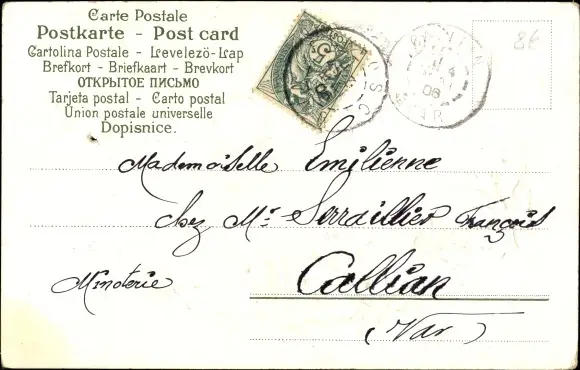 Carte Postale
Postkarte - Post card
Cartolina Postale - Levelezö-Lap
Brefkort - Briefkaart - Brevkort
ОТКРЫТОЕ ПИСЬМО
Tarjeta postal - Carto postal
Union postale universelle
Dopisnice.
86
06
VAR
Mademoiselle Emilienne
chez Mr Serraillier François
Minoterie
Callian
(Var)